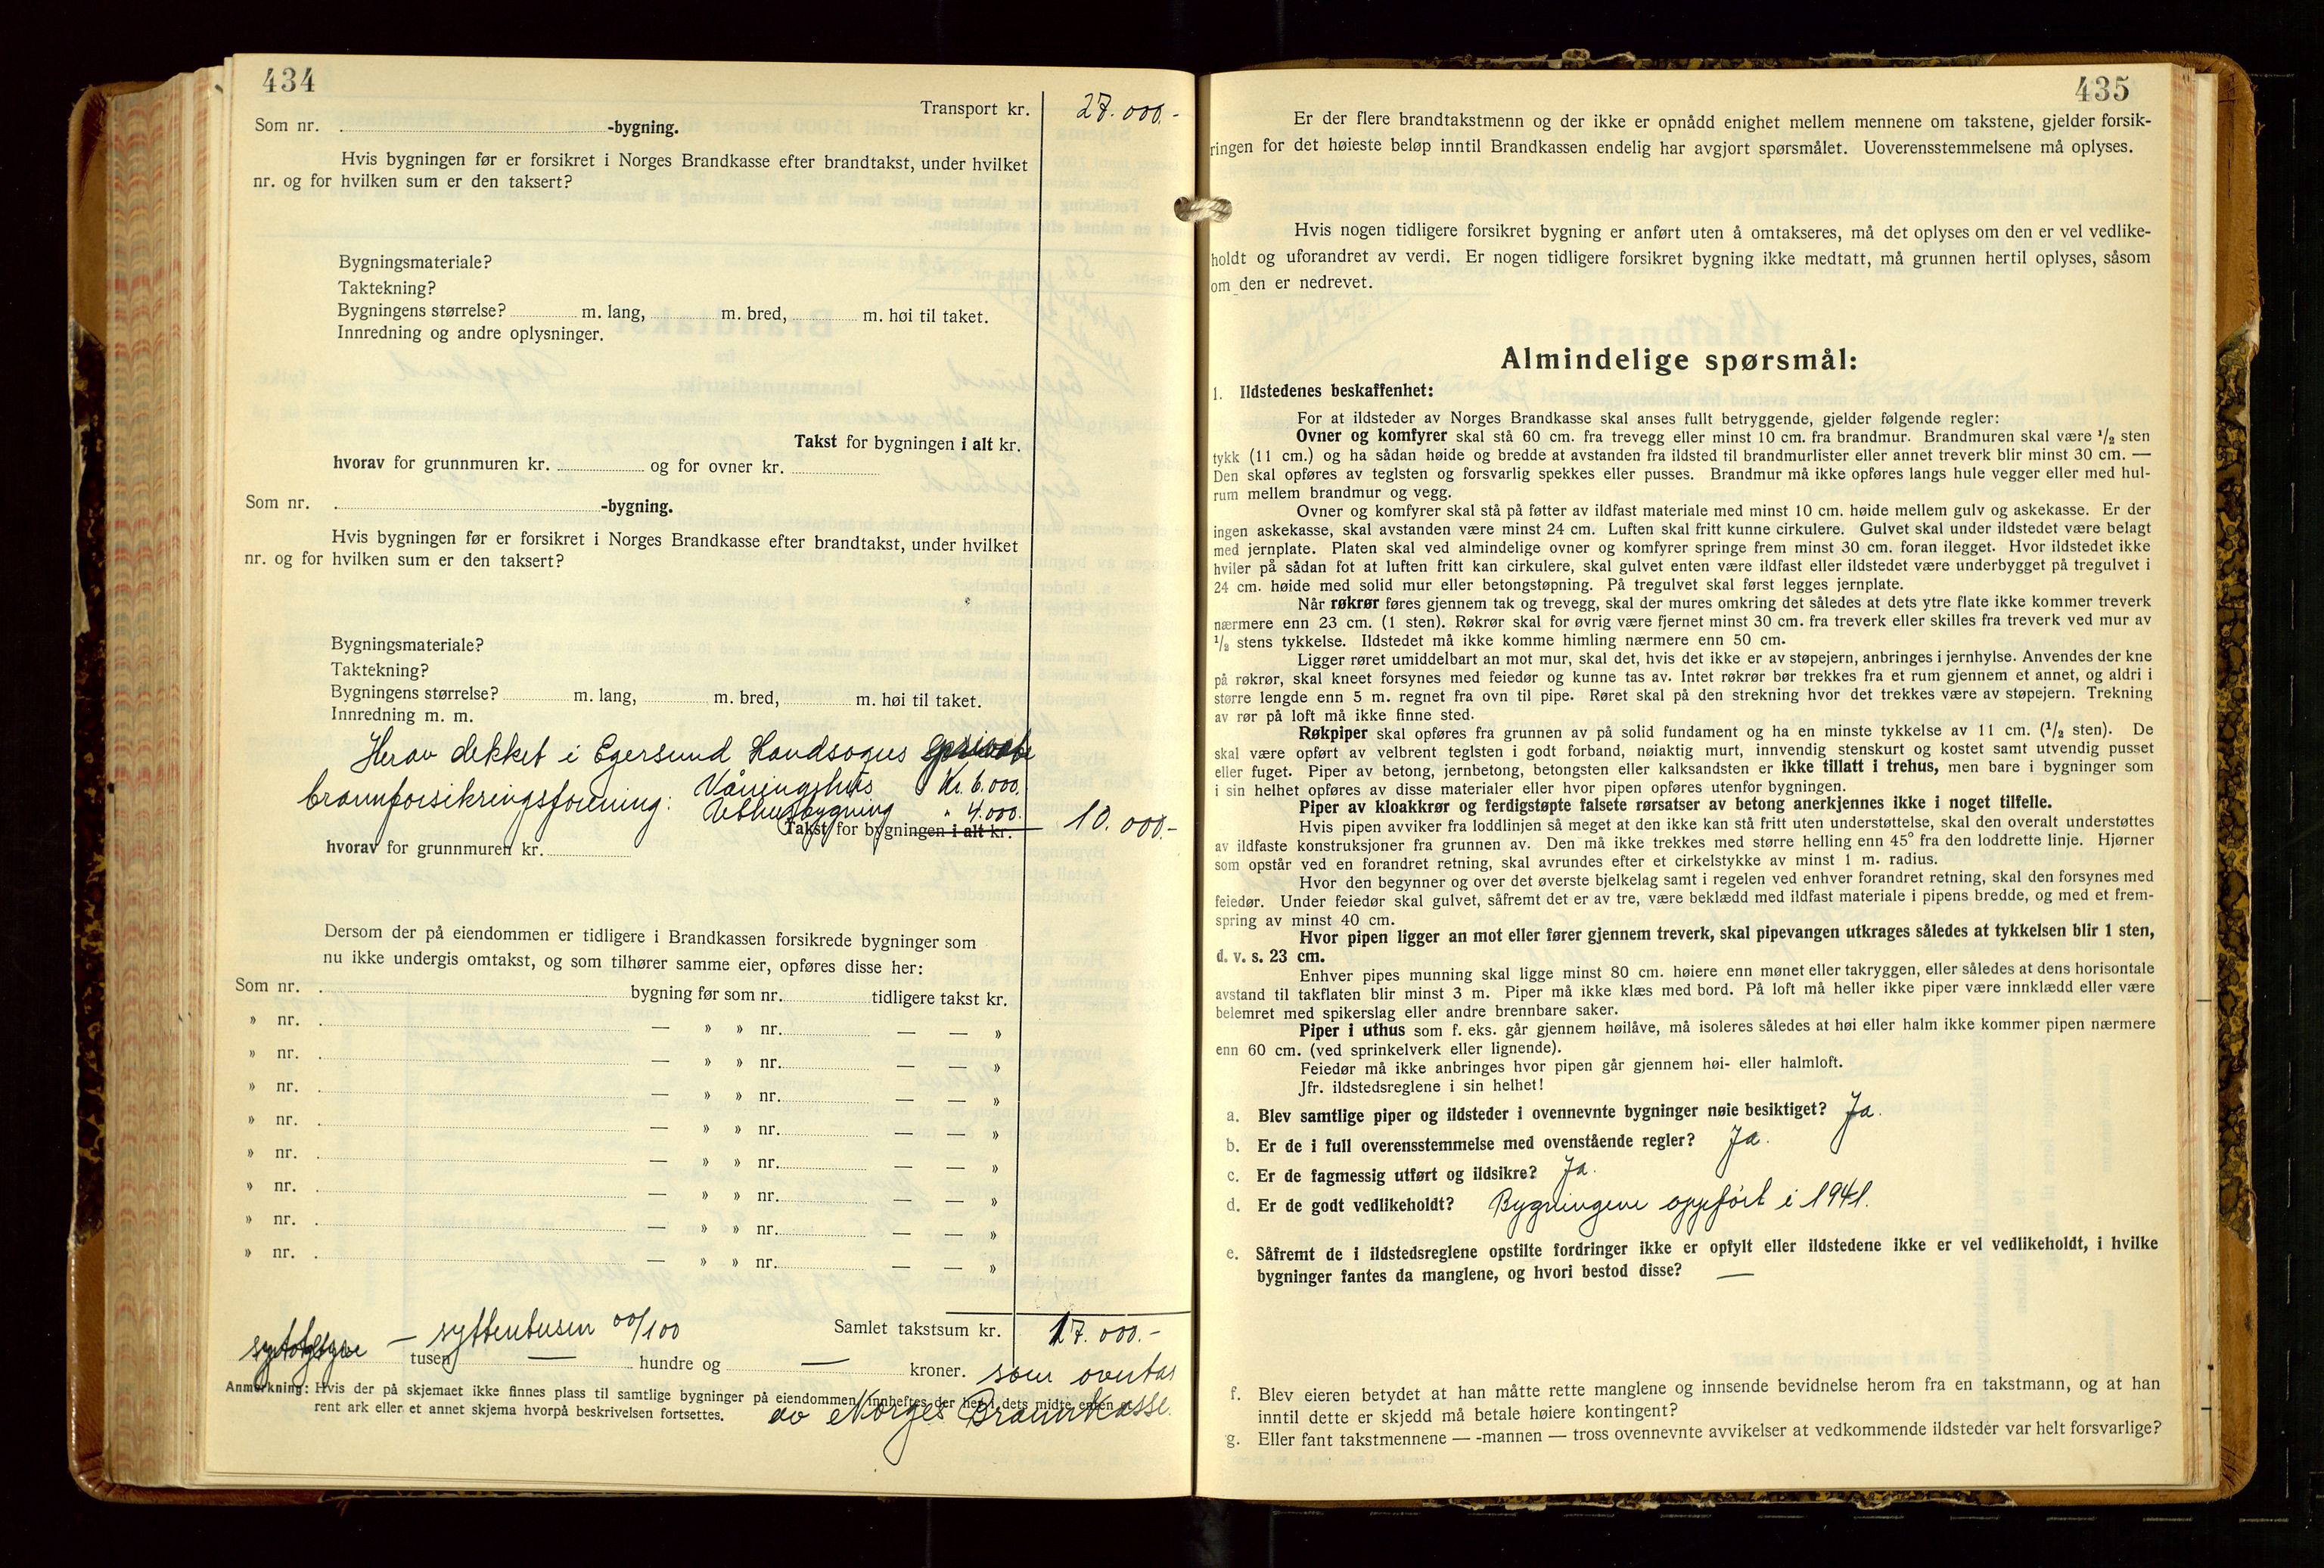 434
Transport kr. 27.000.-
Som nr. -bygning.
Hvis bygningen før er forsikret i Norges Brandkasse efter brandtakst, under hvilket
nr. og for hvilken sum er den taksert?
Bygningsmateriale?
Taktekning?
Bygningens størrelse? m. lang, m. bred, m. høi til taket.
Innredning og andre oplysninger.
Takst for bygningen i alt kr.
hvorav for grunnmuren kr. og for ovner kr.
Som nr. -bygning.
Hvis bygningen før er forsikret i Norges Brandkasse efter brandtakst, under hvilket
nr. og for hvilken sum er den taksert?
Bygningsmateriale?
Taktekning?
Bygningens størrelse? m. lang, m. bred, m. høi til taket.
Innredning m. m.
Herav dekket i Egersund Landsogns private
brannforsikringsforening: Våningshus Kr. 6.000.
Uthusbygning " 4.000.
Takst for bygningen i alt kr. 10.000.-
hvorav for grunnmuren kr.
Dersom der på eiendommen er tidligere i Brandkassen forsikrede bygninger som
nu ikke undergis omtakst, og som tilhører samme eier, opføres disse her:
Som nr. bygning før som nr. tidligere takst kr.
» nr. — » » nr. — — »
» nr. — » » nr. — — »
» nr. — » » nr. — — »
» nr. — » » nr. — — »
» nr. — » » nr. — — »
» nr. — » » nr. — — »
» nr. — » » nr. — — »
» nr. — » » nr. — — »
Samlet takstsum kr. 17.000.-
— syttentusen 00/100
tusen — hundre og — kroner. som overtas
Anmerkning: Hvis der på skjemaet ikke finnes plass til samtlige bygninger på eiendommen, innheftes der her i dets midte enten et
rent ark eller et annet skjema hvorpå beskrivelsen fortsettes. av Norges Brannkasse.
435
Er der flere brandtakstmenn og der ikke er opnådd enighet mellem mennene om takstene, gjelder forsik-
ringen for det høieste beløp inntil Brandkassen endelig har avgjort spørsmålet. Uoverensstemmelsene må oplyses.
Hvis nogen tidligere forsikret bygning er anført uten å omtakseres, må det oplyses om den er vel vedlike-
holdt og uforandret av verdi. Er nogen tidligere forsikret bygning ikke medtatt, må grunnen hertil oplyses, såsom
om den er nedrevet.
Almindelige spørsmål:
1. Ildstedenes beskaffenhet:
For at ildsteder av Norges Brandkasse skal anses fullt betryggende, gjelder følgende regler:
Ovner og komfyrer skal stå 60 cm. fra trevegg eller minst 10 cm. fra brandmur. Brandmuren skal være 1/2 sten
tykk (11 cm.) og ha sådan høide og bredde at avstanden fra ildsted til brandmurlister eller annet treverk blir minst 30 cm. —
Den skal opføres av teglsten og forsvarlig spekkes eller pusses. Brandmur må ikke opføres langs hule vegger eller med hul-
rum mellem brandmur og vegg.
Ovner og komfyrer skal stå på føtter av ildfast materiale med minst 10 cm. høide mellem gulv og askekasse. Er der
ingen askekasse, skal avstanden være minst 24 cm. Luften skal fritt kunne cirkulere. Gulvet skal under ildstedet være belagt
med jernplate. Platen skal ved almindelige ovner og komfyrer springe frem minst 30 cm. foran ilegget. Hvor ildstedet ikke
hviler på sådan fot at luften fritt kan cirkulere, skal gulvet enten være ildfast eller ildstedet være underbygget på tregulvet i
24 cm. høide med solid mur eller betongstøpning. På tregulvet skal først legges jernplate.
Når røkrør føres gjennem tak og trevegg, skal der mures omkring det således at dets ytre flate ikke kommer treverk
nærmere enn 23 cm. (1 sten). Røkrør skal for øvrig være fjernet minst 30 cm. fra treverk eller skilles fra treverk ved mur av
1/2 stens tykkelse. Ildstedet må ikke komme himling nærmere enn 50 cm.
Ligger røret umiddelbart an mot mur, skal det, hvis det ikke er av støpejern, anbringes i jernhylse. Anvendes der kne
på røkrør, skal kneet forsynes med feiedør og kunne tas av. Intet røkrør bør trekkes fra et rum gjennem et annet, og aldri i
større lengde enn 5 m. regnet fra ovn til pipe. Røret skal på den strekning hvor det trekkes være av støpejern. Trekning
av rør på loft må ikke finne sted.
Røkpiper skal opføres fra grunnen av på solid fundament og ha en minste tykkelse av 11 cm. (1/2 sten). De
skal være opført av velbrent teglsten i godt forband, nøiaktig murt, innvendig stenskurt og kostet samt utvendig pusset
eller fuget. Piper av betong, jernbetong, betongsten eller kalksandsten er ikke tillatt i trehus, men bare i bygninger som
i sin helhet opføres av disse materialer eller hvor pipen opføres utenfor bygningen.
Piper av kloakkrør og ferdigstøpte falsete rørsatser av betong anerkjennes ikke i noget tilfelle.
Hvis pipen avviker fra loddlinjen så meget at den ikke kan stå fritt uten understøttelse, skal den overalt understøttes
av ildfaste konstruksjoner fra grunnen av. Den må ikke trekkes med større helling enn 45° fra den loddrette linje. Hjørner
som opstår ved en forandret retning, skal avrundes efter et cirkelstykke av minst 1 m. radius.
Hvor den begynner og over det øverste bjelkelag samt i regelen ved enhver forandret retning, skal den forsynes med
feiedør. Under feiedør skal gulvet, såfremt det er av tre, være beklædd med ildfast materiale i pipens bredde, og med et frem-
spring av minst 40 cm.
Hvor pipen ligger an mot eller fører gjennem treverk, skal pipevangen utkrages således at tykkelsen blir 1 sten,
d. v. s. 23 cm.
Enhver pipes munning skal ligge minst 80 cm. høiere enn mønet eller takryggen, eller således at dens horisontale
avstand til takflaten blir minst 3 m. Piper må ikke klæs med bord. På loft må heller ikke piper være innklædd eller være
belemret med spikerslag eller andre brennbare saker.
Piper i uthus som f. eks. går gjennem høilåve, må isoleres således at høi eller halm ikke kommer pipen nærmere
enn 60 cm. (ved sprinkelverk eller lignende).
Feiedør må ikke anbringes hvor pipen går gjennem høi- eller halmloft.
Jfr. ildstedsreglene i sin helhet!
a. Blev samtlige piper og ildsteder i ovennevnte bygninger nøie besiktiget? Ja.
b. Er de i full overensstemmelse med ovenstående regler? Ja.
c. Er de fagmessig utført og ildsikre? Ja.
d. Er de godt vedlikeholdt? Bygningene oppført i 1941.
e. Såfremt de i ildstedsreglene opstilte fordringer ikke er opfylt eller ildstedene ikke er vel vedlikeholdt, i hvilke
bygninger fantes da manglene, og hvori bestod disse? —
f. Blev eieren betydet at han måtte rette manglene og innsende bevidnelse herom fra en takstmann, og at han
inntil dette er skjedd må betale høiere kontingent?
g. Eller fant takstmennene — -mannen — tross ovennevnte avvikelser at vedkommende ildsteder var helt forsvarlige?